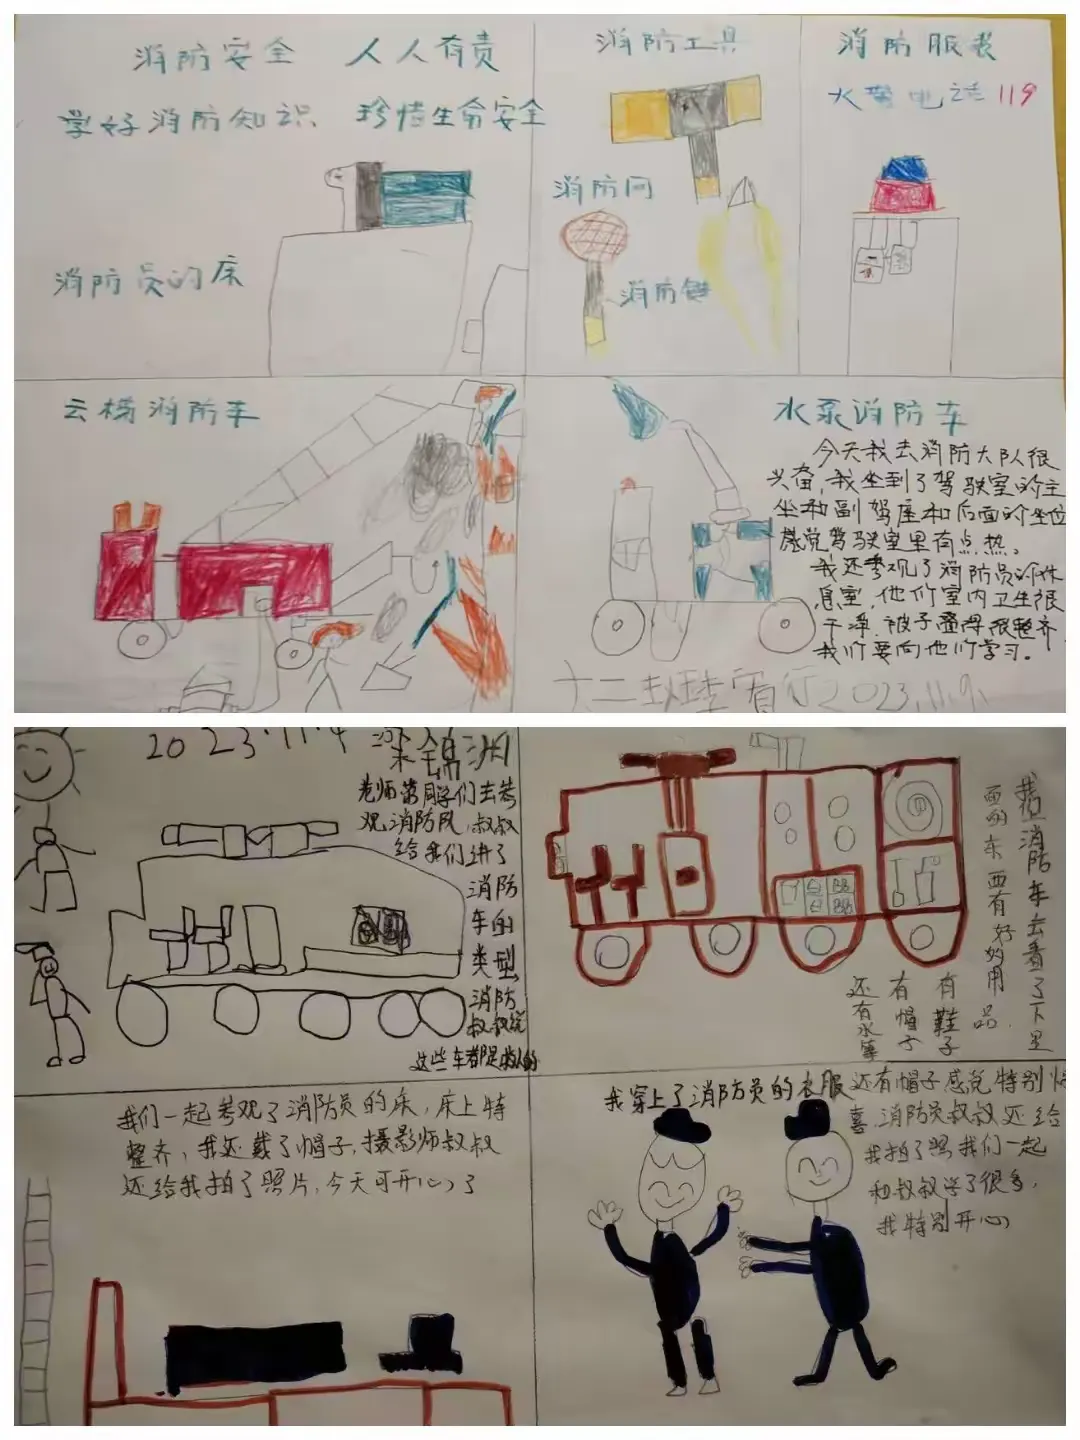 消防安全 人人有责
学好消防知识 珍惜生命安全
消防员的床
消防工具
消防网
消防锹
消防服装
火警电话119
云梯消防车
水泵消防车
今天我去消防大队很
兴奋,我坐到了驾驶室的主
坐和副驾座和后面的坐位
感觉驾驶室里有点热。
我还参观了消防员的休
息室,他们室内卫生很
干净,被子叠得很整齐
我们要向他们学习。
大二 2023.11.9.
2023.11.9
梁锦
老师带同学们去参
观消防队,叔叔
给我们讲了
消防
车的
类型
消防
叔叔说
这些车都是救人的
我们消防车去看了下里
面的东西有好的用品.
有鞋子
有帽子
还有水管
我们一起参观了消防员的床,床上特
整齐,我还戴了帽子,摄影师叔叔
还给我拍了照片,今天可开心了
我穿上了消防员的衣服还有帽子感觉特别惊
喜,消防员叔叔还给
我拍了照我们一起
和叔叔学了很多,
我特别开心